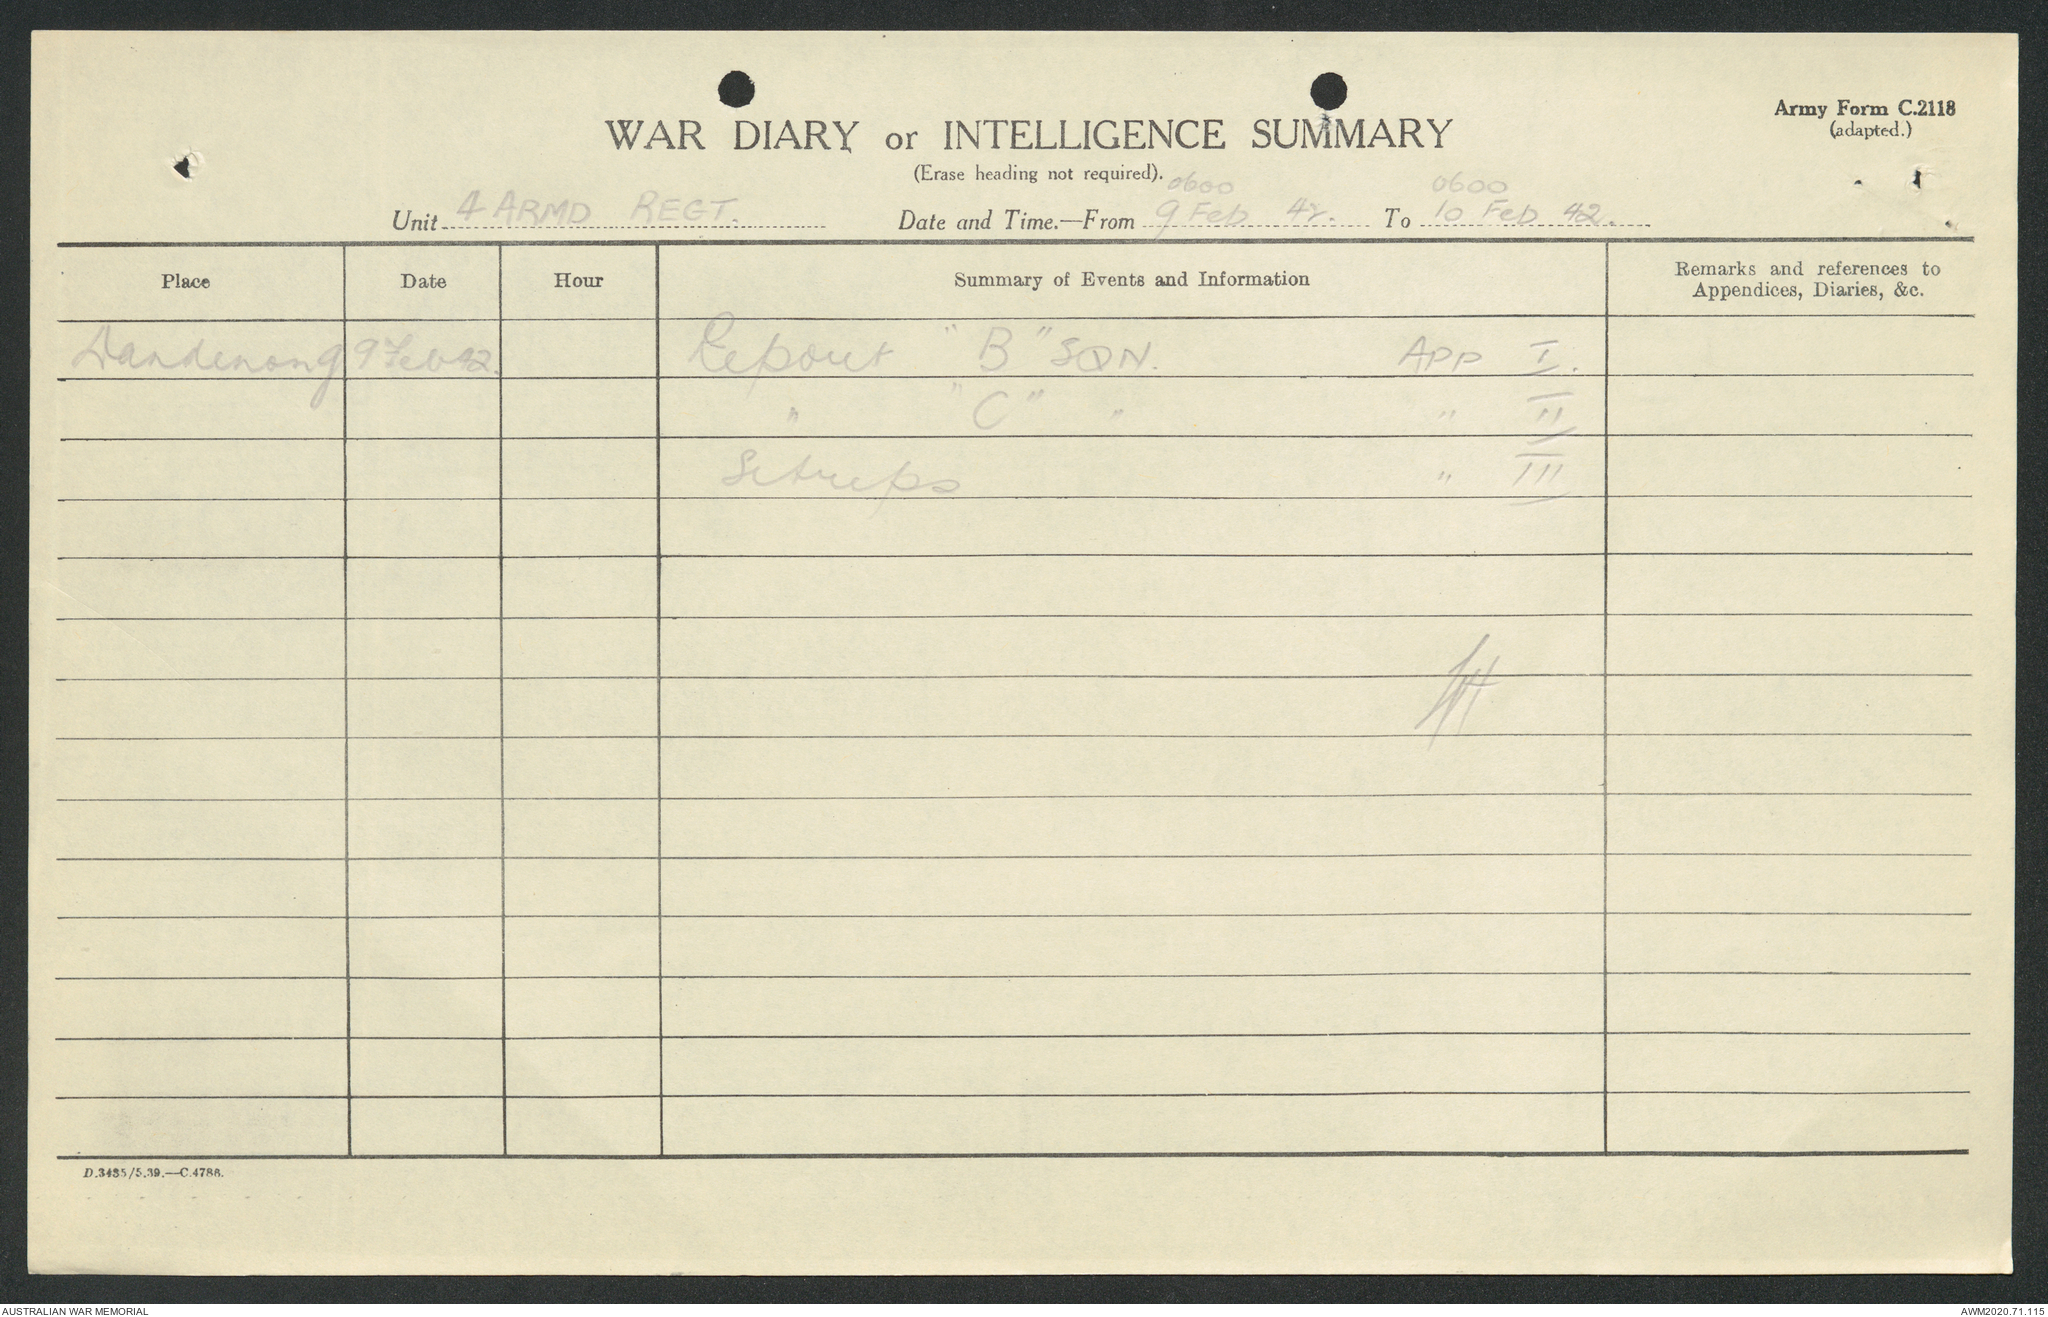 Army Form C.2118
(adapted.)
WAR DIARY or INTELLIGENCE SUMMARY
(Erase heading not required).
Unit 4 ARMD REGT. Date and Time.—From 0600 9 Feb 42. To 0600 10 Feb 42.
Place Date Hour Summary of Events and Information Remarks and references to Appendices, Diaries, &c.
Dandenong 9 Feb 42. Report "B" SQN. APP I.
" "C" " " II
Sitreps " III
D.3435/5.39.—C.4786.
AUSTRALIAN WAR MEMORIAL
AWM2020.71.115